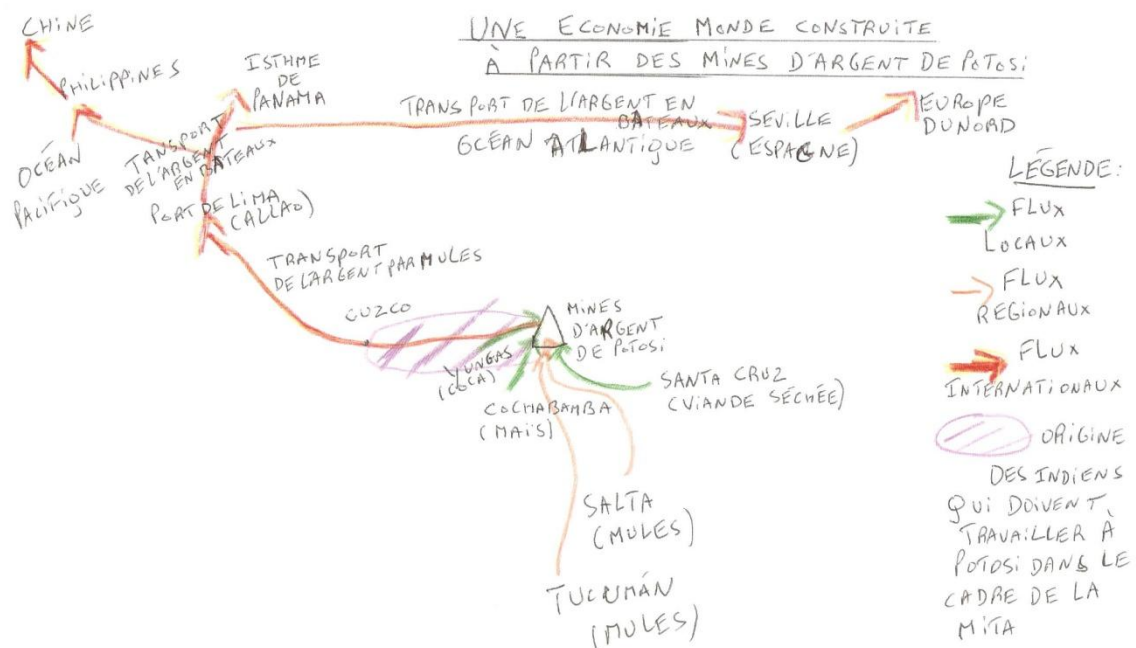 UNE ECONOMIE MONDE CONSTRUITE
À PARTIR DES MINES D'ARGENT DE POTOSI
CHINE
PHILIPPINES
OCÉAN
PACIFIQUE
ISTHME
DE
PANAMA
TANSPORT
DE L'ARGENT
EN BATEAUX
TRANSPORT DE L'ARGENT EN
BATEAUX
OCÉAN ATLANTIQUE
SEVILLE
(ESPAGNE)
EUROPE
DU NORD
PORT DE LIMA
(CALLAO)
TRANSPORT
DE L'ARGENT PAR MULES
CUZCO
MINES
D'ARGENT
DE POTOSI
YUNGAS
(COCA)
COCHABAMBA
(MAÏS)
SANTA CRUZ
(VIANDE SÉCHÉE)
SALTA
(MULES)
TUCUMÁN
(MULES)
LÉGENDE:
FLUX
LOCAUX
FLUX
RÉGIONAUX
FLUX
INTERNATIONAUX
ORIGINE
DES INDIENS
QUI DOIVENT
TRAVAILLER À
POTOSI DANS LE
CADRE DE LA
MITA